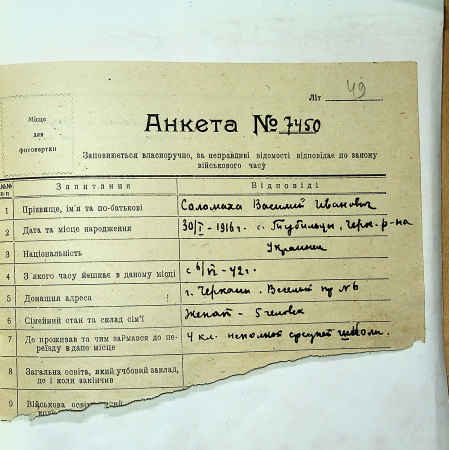 Літ 49
Місце
для
фотокартки
Анкета № 7450
Заповнюється власноручно, за неправдиві відомості відповідає по закону
військового часу
№№ п-п Запитання Відповіді
1 Прізвище, ім'я та по-батькові Соломаха Василий Иванович
2 Дата та місце народження 30/I - 1916 г. с. Тубильцы, Черк. р-на
3 Національність Украинец
4 З якого часу йешкає в даному місці с 6/VI - 42 г.
5 Домашня адреса г. Черкассы. Веселый №6
6 Сімейний стан та склад сім'ї Женат - 5 человек
7 Де проживав та чим займався до пе-
реїзду в дане місце 4 кл. неполной средней школы.
8 Загальна освіта, який учбовий заклад,
де і коли закінчив
9 Військова